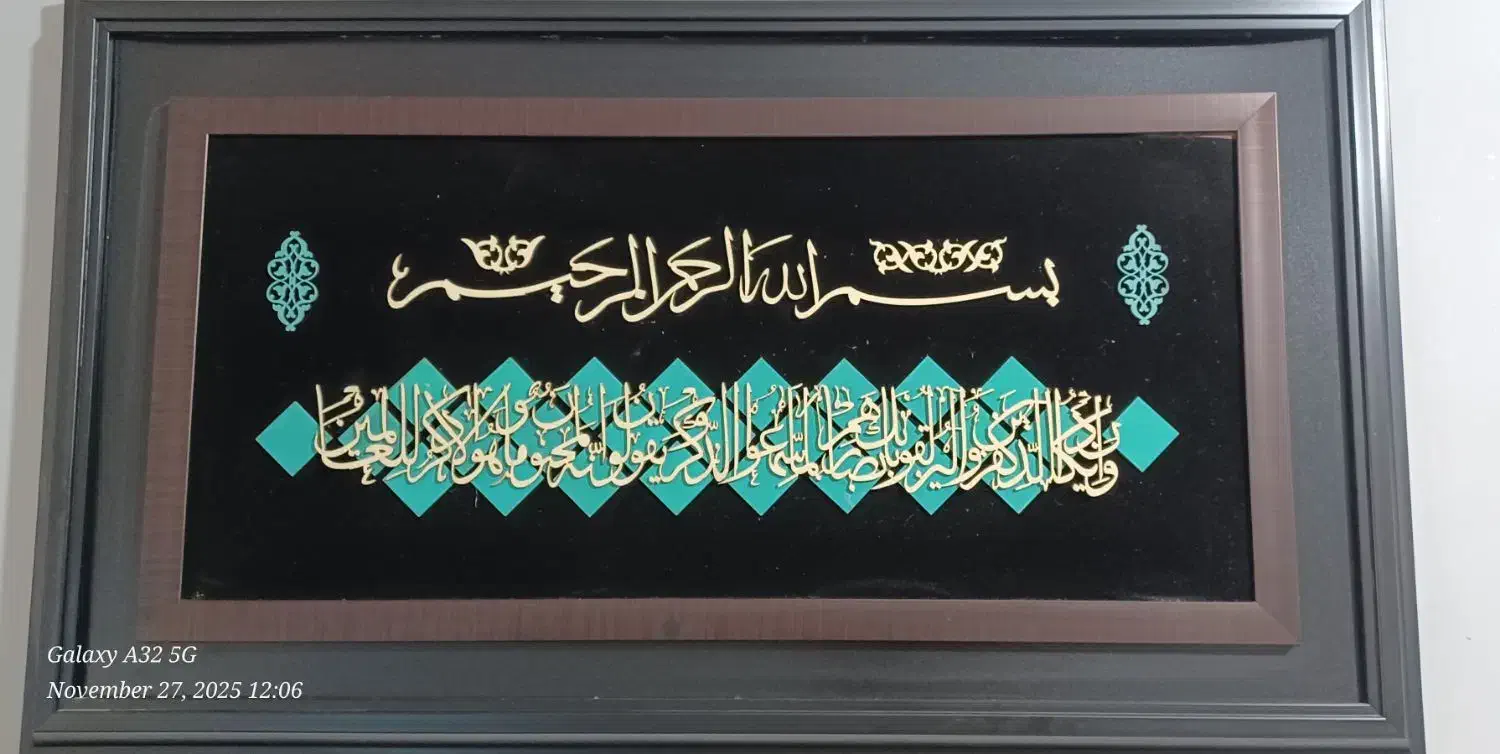 بسم الله الرحمن الرحيم
وإن يكاد الذين كفروا ليزلقونك بأبصارهم لما سمعوا الذكر ويقولون إنه لمجنون وما هو إلا ذكر للعالمين
Galaxy A32 5G
November 27, 2025 12:06